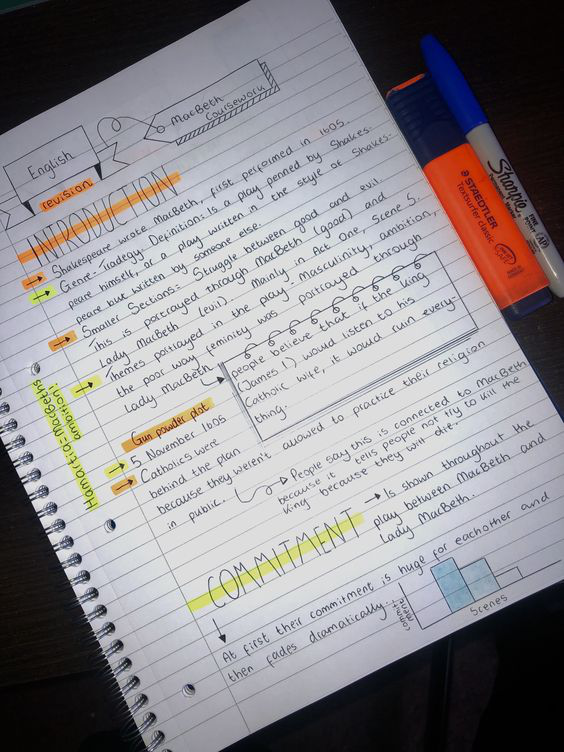 English
MacBeth
Coursework
revision
INTRODUCTION
Shakespeare wrote MacBeth, first performed in 1605.
Genre- Tradegy. Definition: is a play penned by Shakes-
peare himself, or a play written in the style of Shakes-
peare but written by someone else.
Smaller Sections: Struggle between good and evil.
This is portrayed through MacBeth (good) and
Lady MacBeth (evil). Mainly in Act One, Scene 5.
Themes portrayed in the play- Masculinity, ambition,
the poor way feminity was portrayed through
Lady MacBeth
people believe that if the king
(James 1) would listen to his
Catholic wife, it would ruin every-
thing.
Hamartia = MacBeths
ambition!
Gun powder plot
5 November 1605
Catholics were
behind the plan
because they weren't allowed to practice their religion
in public.
People say this is connected to MacBeth
because it tells people not try to kill the
king because they will die.
COMMITMENT
Is shown throughout the
play between MacBeth and
Lady MacBeth.
At first their commitment is huge for eachother and
then fades dramatically..
commit
ment
Scenes
STAEDTLER
Textsurfer classic
Sharpie
FINE
PERMANENT MARKER
AP